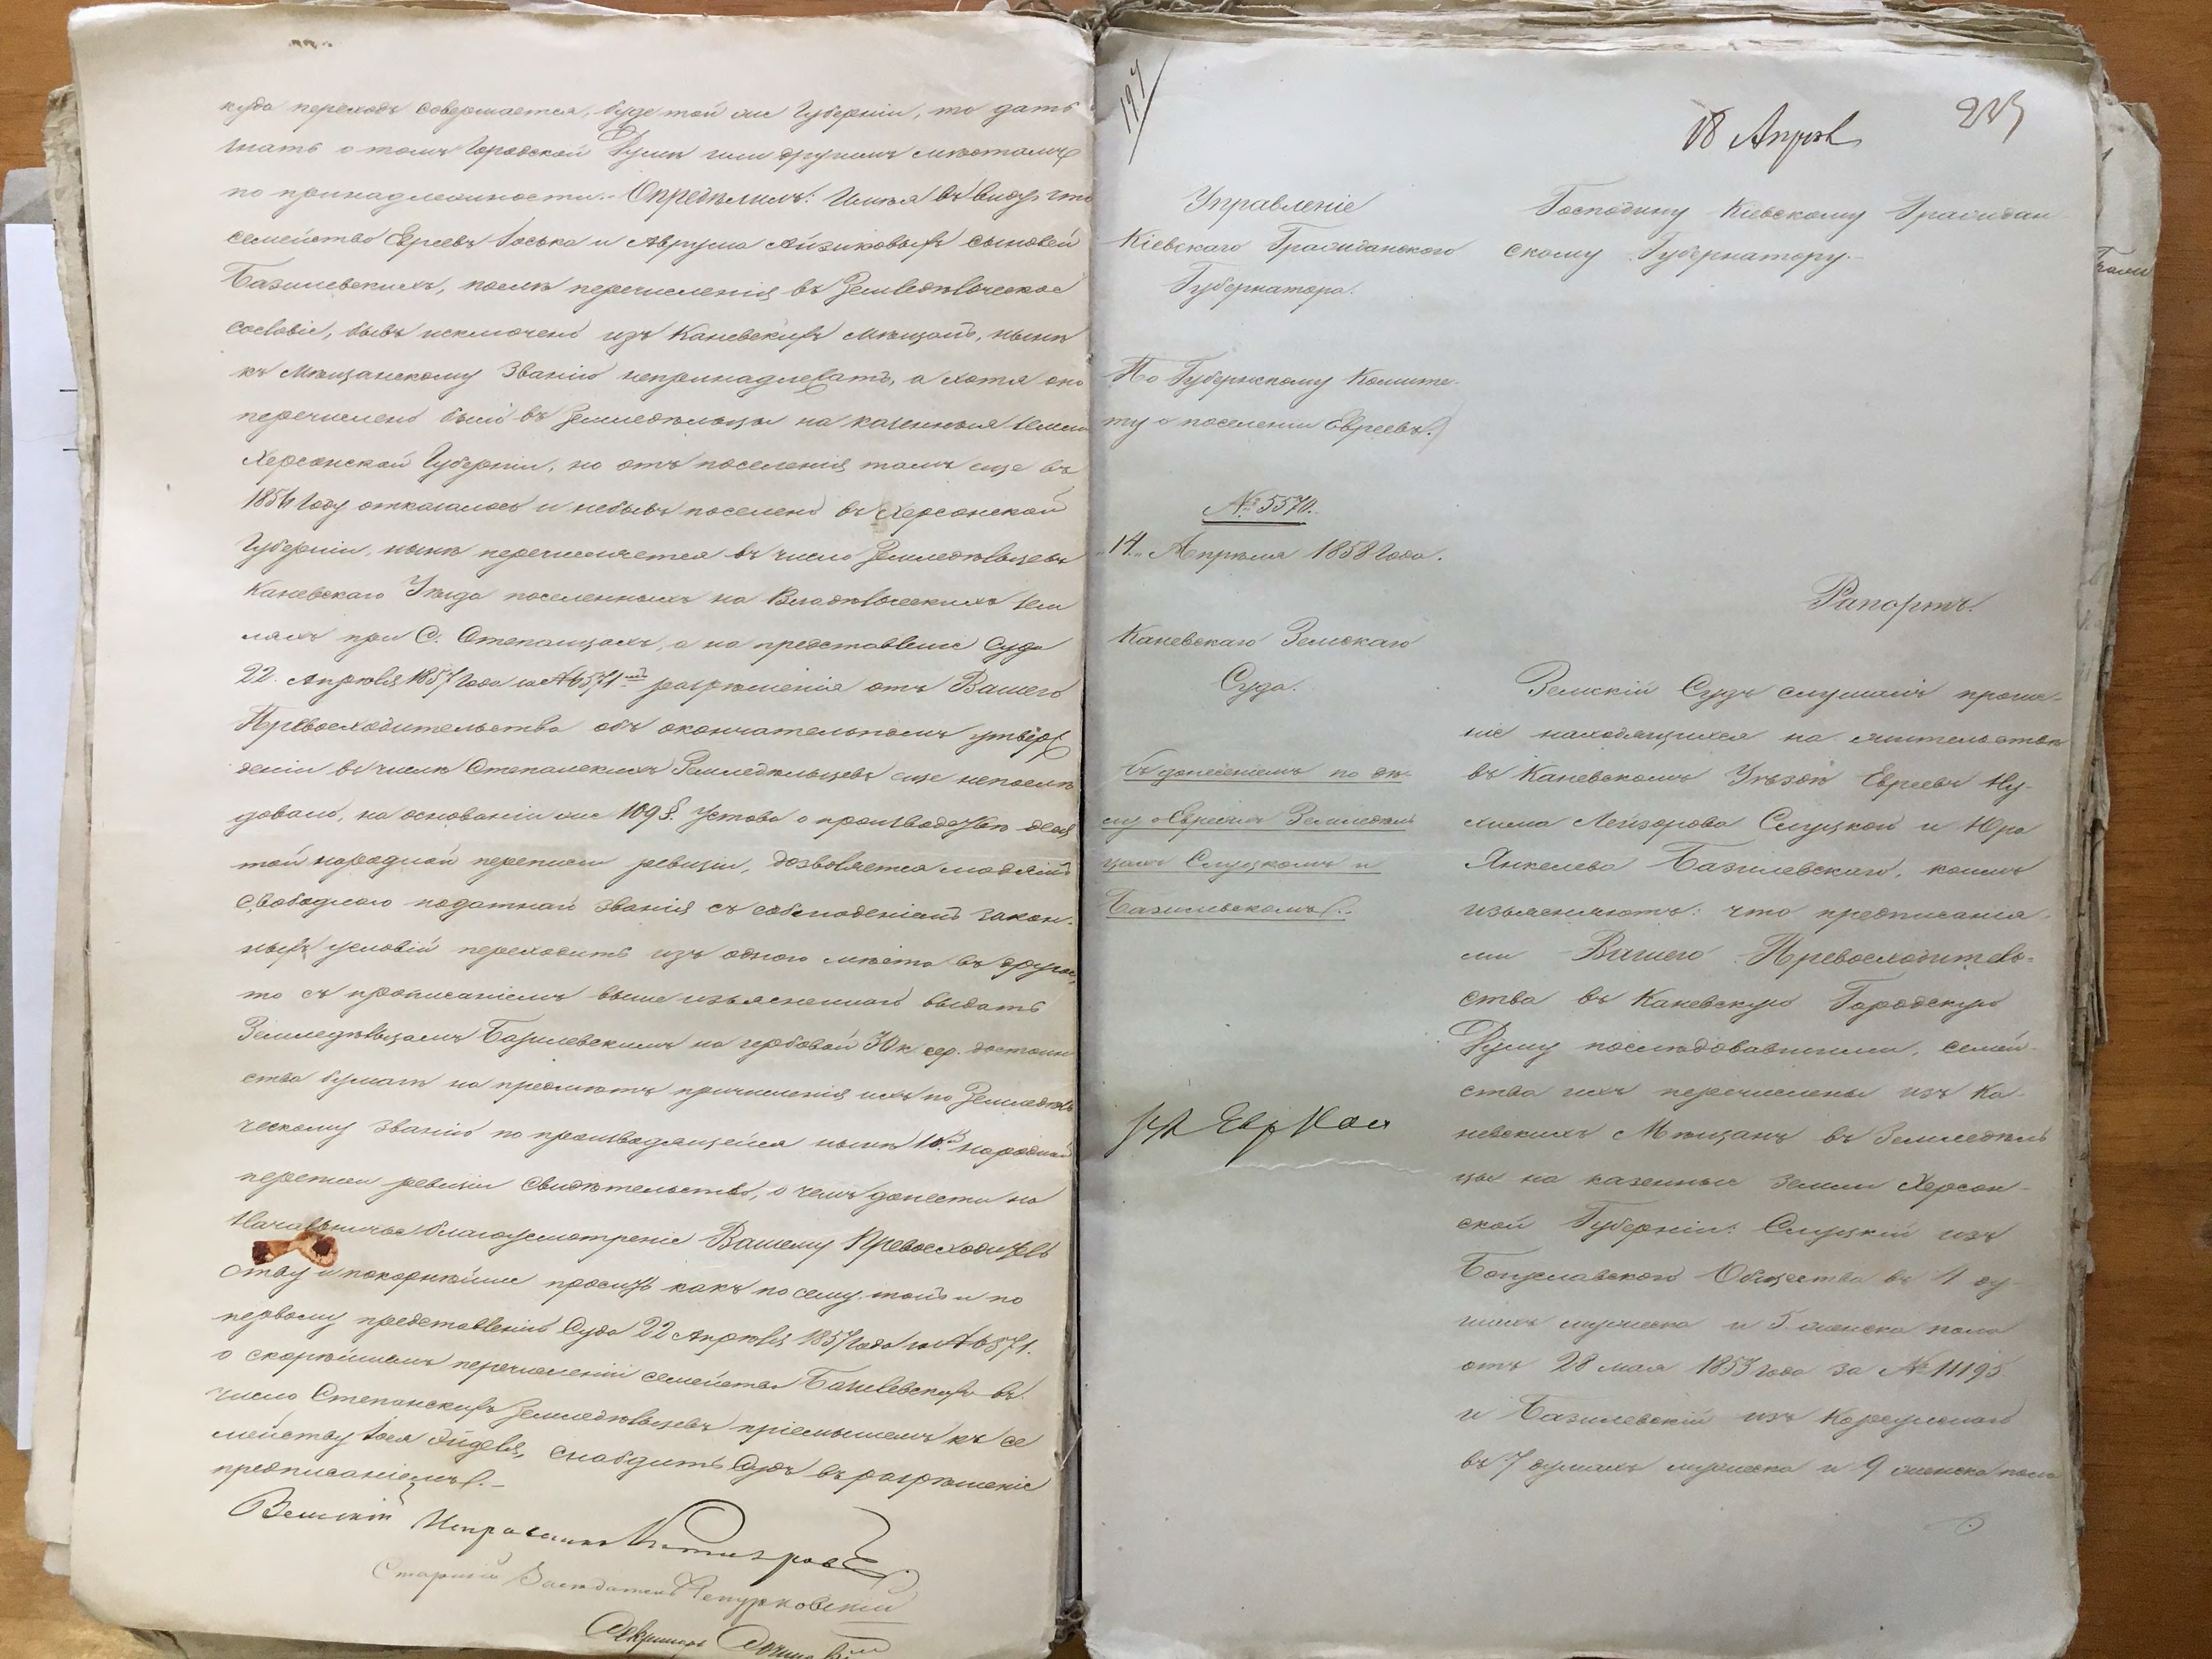 куда переходъ совершается, буде той же Губерніи, то дать
знать о томъ Городской Думѣ или другимъ мѣстамъ
по принадлежности.- Опредѣлилъ: Имѣя въ виду что
семейство Евреевъ Іоська и Аврума Айзиковыхъ сыновей
Базилевскихъ, послѣ перечисленія въ Земледѣльческое
сословіе, бывъ исключено изъ Каневскихъ Мѣщанъ, нынѣ
къ Мѣщанскому званію непринадлежатъ, а хотя оно
перечислено было въ Земледѣльцы на казенныя земли
Херсонской Губерніи, но отъ поселенія тамъ еще въ
году отказалось и небывъ поселено въ Херсонской
Губерніи, нынѣ перечисляется въ число Земледѣльцевъ
Каневскаго Уѣзда поселенныхъ на Владѣльческихъ зем
ляхъ при С. Степанцахъ, а на представленіе Суда
22. Апрѣля 1857 года за № 6571 разрѣшенія отъ Вашего
Превосходительства объ окончательномъ утверж
деніи въ числѣ Степанскихъ Земледѣльцевъ еще непослѣ
довало, на основаніи же 109 §. Устава о производствѣ деся
той народной переписи ревизіи, дозволяется людямъ
свободнаго податнаго званія съ соблюденіемъ закон-
ныхъ условій переходить изъ одного мѣста въ другое,
то съ прописаніемъ выше изъясненнаго выдать
Земледѣльцамъ Базилевскимъ на гербовой 30 к. сер. достоин
ства бумагѣ на предметъ причисленія ихъ по Земледѣль
ческому званію по производящейся нынѣ 10й народной
переписи ревизіи свидѣтельство, о чемъ донести на
Начальничье благоусмотреніе Вашему Превосходитель
ству и покорнѣйше просить какъ по сему, такъ и по
первому представленію Суда 22 Апрѣля 1857 года за № 6571.
о скорѣйшемъ перечисленіи семейства Базилевскихъ въ
число Степанскихъ Земледѣльцевъ пріемышемъ къ се
мейству снабдить Судъ въ разрѣшеніе
предписаніемъ.-
Земскій Исправникъ
Старшій Засѣдатель
Секретарь
18 Апрѣл
Управленіе
Кіевскаго Гражданскаго
Губернатора.
По Губернскому Комите-
ту о поселеніи Евреевъ.
№ 5570.
„14„ Апрѣля 1858 года.
Каневскаго Земскаго
Суда.
Съ донесеніемъ по дѣ-
лу о Евреяхъ Земледѣль
цахъ Слуцкомъ и
Базилевскомъ.
Господину Кіевскому Граждан-
скому Губернатору.-
Рапортъ.
Земскій Судъ слушалъ проше-
ніе находящихся на жительствѣ
въ Каневскомъ Уѣздѣ Евреевъ Ну-
хима Лейзорова Слуцкой и Юра
Янкелева Базилевскаго, коимъ
изъясняютъ: что предписанія-
ми Вашего Превосходитель-
ства въ Каневскую Городскую
Думу послѣдовавшими, семей-
ства ихъ перечислены изъ Ка-
невскихъ Мѣщанъ въ Земледѣль
цы на казенные земли Херсон-
ской Губерніи: Слуцкій изъ
Богуславскаго Общества въ 4 ду-
шахъ мужеска и 5. женска пола
отъ 28 мая 1853 года за № 11195
и Базилевскій изъ Корсунскаго
въ 7 душахъ мужеска и 9 женска пола